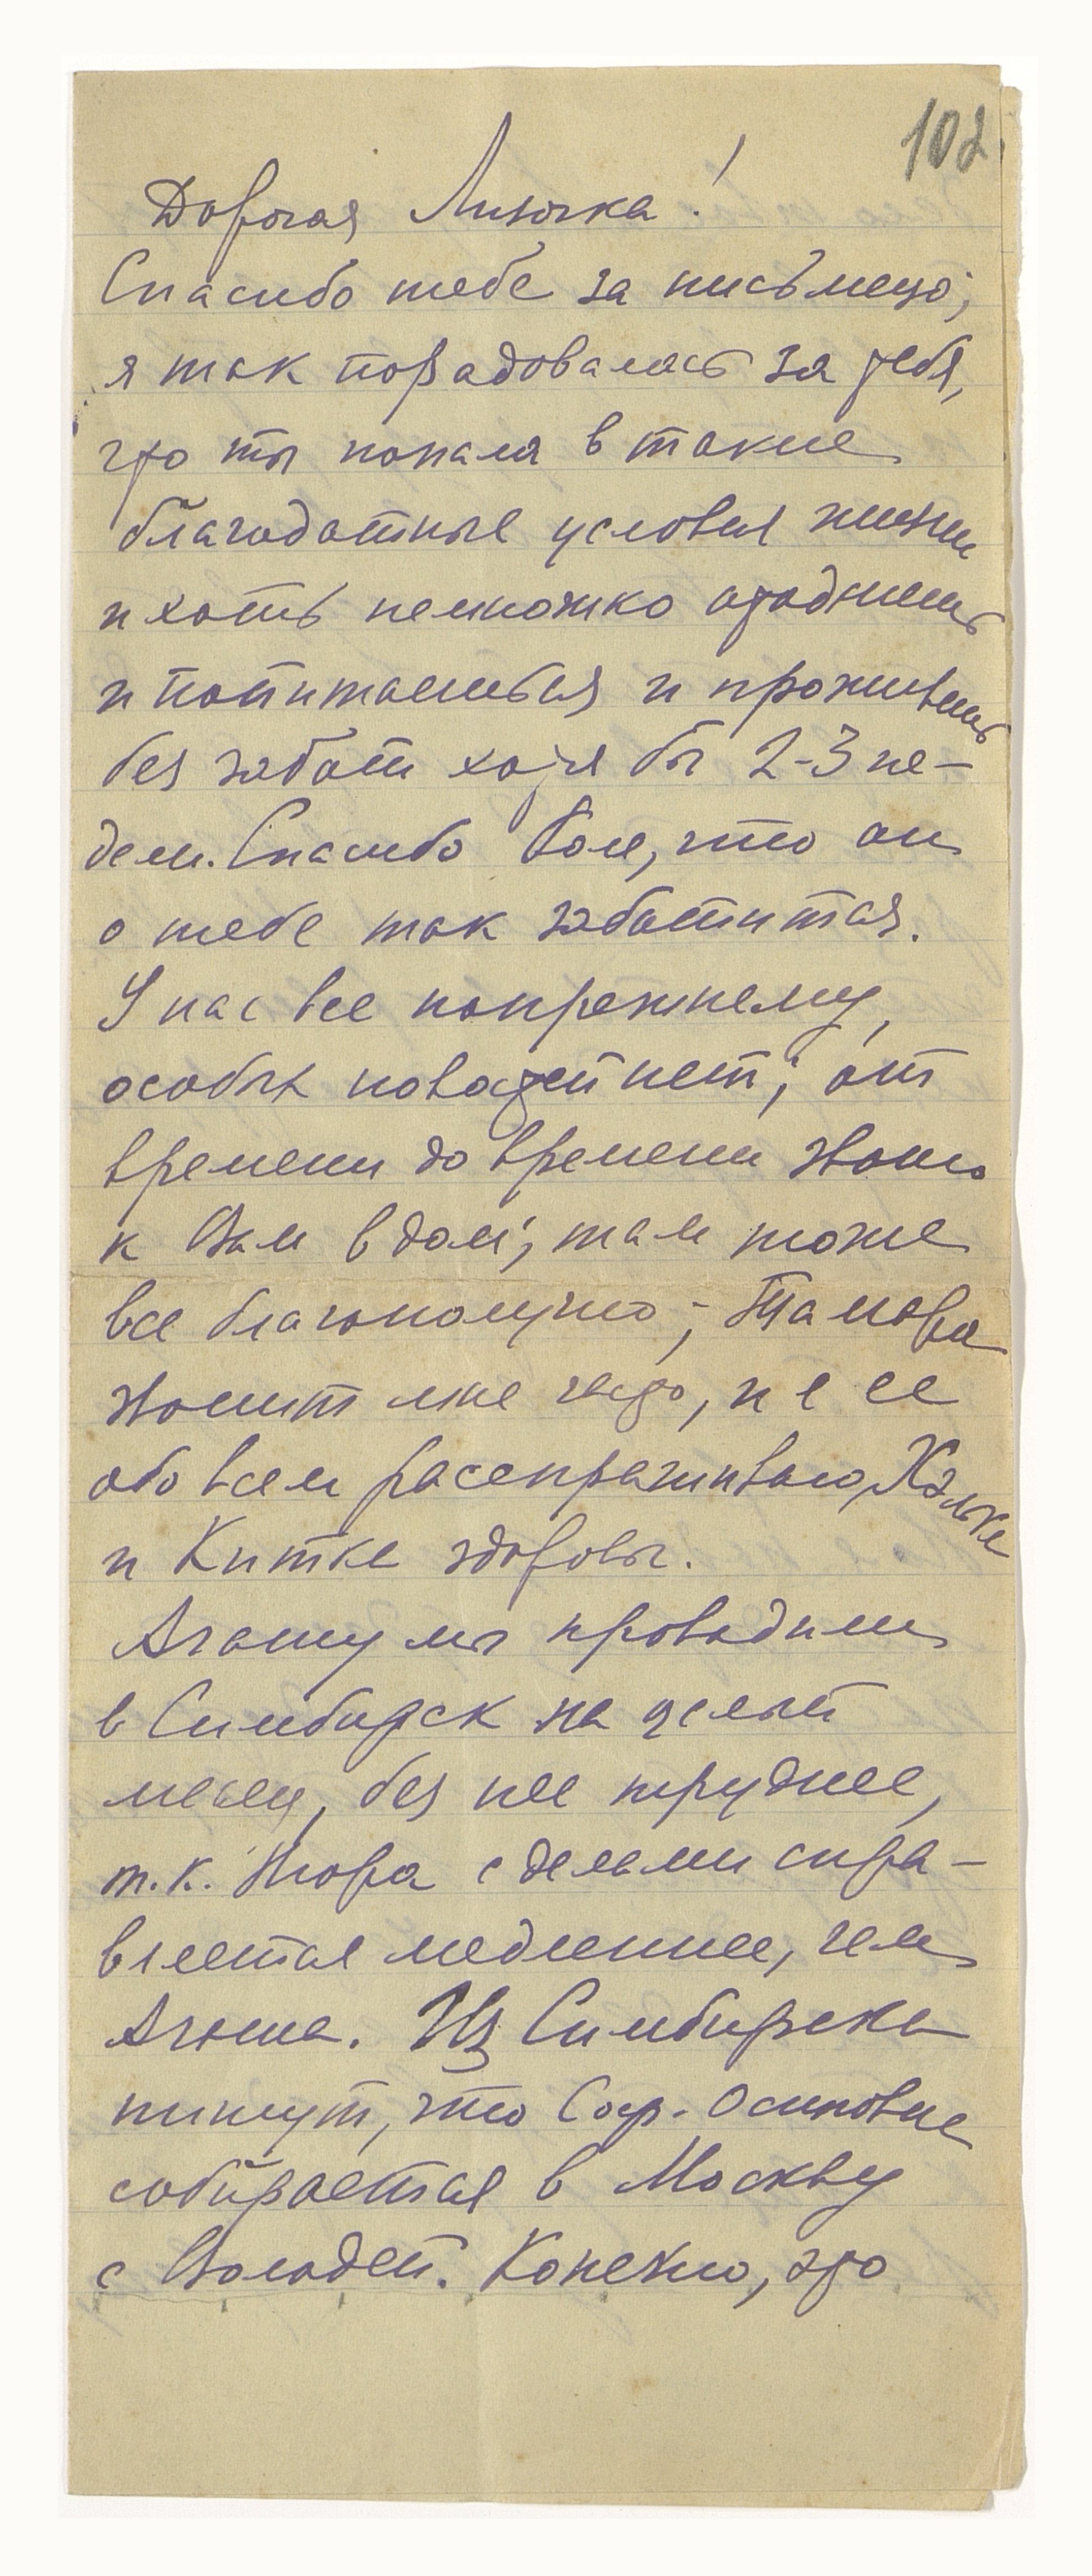 102
Дорогая Лизочка!
Спасибо тебе за письмецо;
я так порадовалась за тебя,
что ты попала в такие
благодатные условия жизни
и хоть немножко отдохнешь
и попитаешься и проживешь
без забот хотя бы 2-3 не-
дели. Спасибо Воле, что он
о тебе так заботится.
У нас все попрежнему,
особых новостей нет; от
времени до времени звоню
к Вам в дом; там тоже
все благополучно; Тамара
звонит мне часто, и я ее
обо всем расспрашиваю,
и Китка здоровы.
Агашу мы проводили
в Симбирск на целый
месяц, без нее труднее,
т.к. Нюра с делами спра-
вляется медленнее, чем
Агаша. Из Симбирска
пишут, что Соф. Осиповна
собирается в Москву
с Володей. Конечно, это